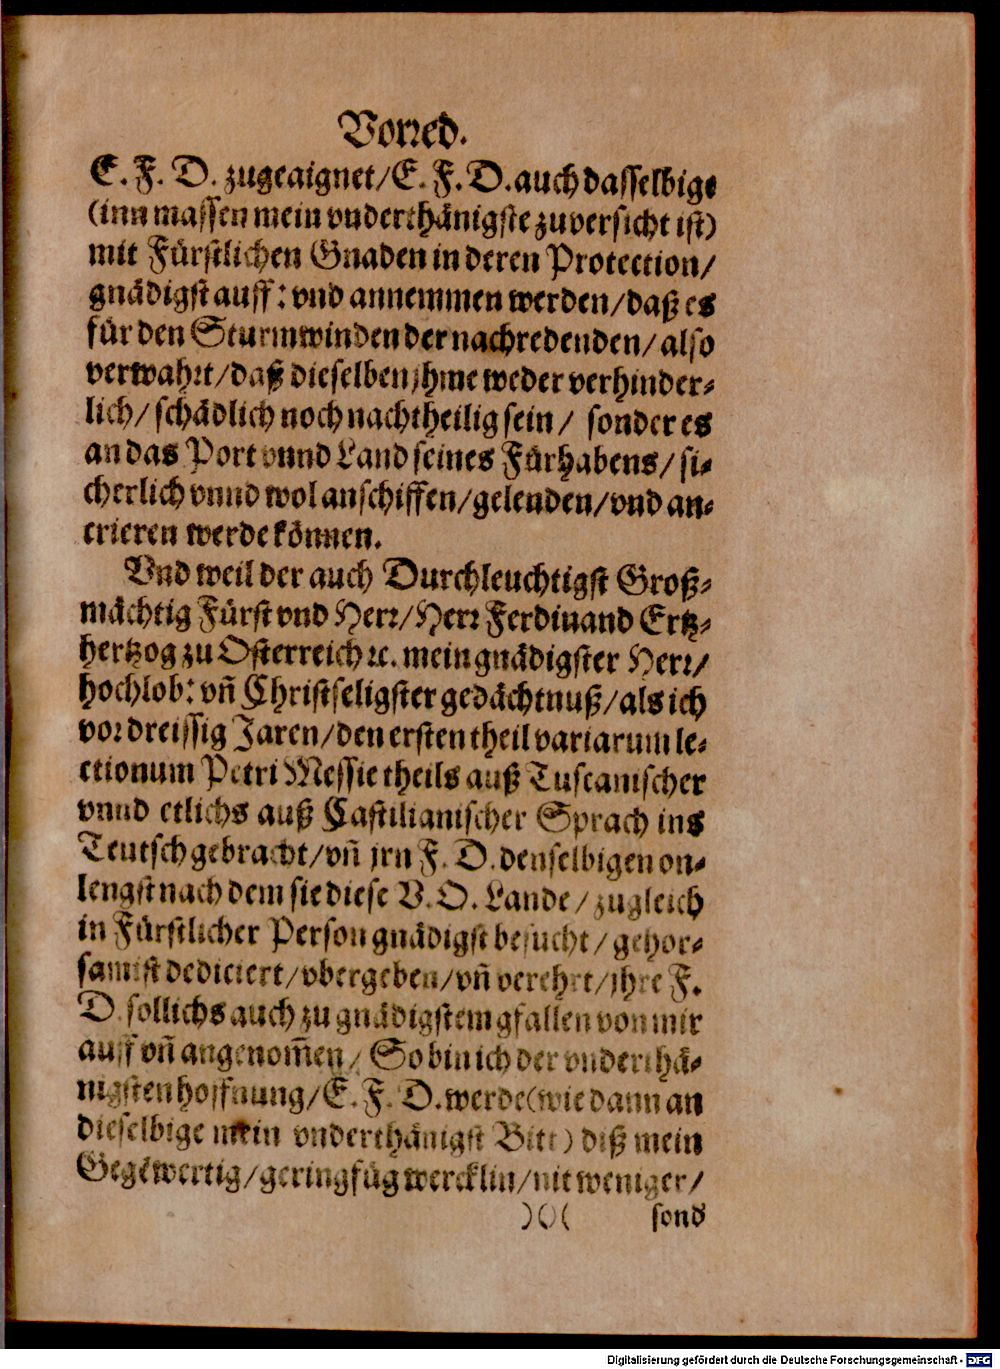 Vorred.
E. F. D. zugeaignet/E. F. D. auch dasselbige
(inn massen mein vnderthänigste zuversicht ist)
mit Fürstlichen Gnaden in deren Protection/
gnädigst auff: vnd annemmen werden/daß es
für den Sturmwinden der nachredenden/also
verwahrt/daß dieselben jhme weder verhinder-
lich/schädlich noch nachtheilig sein/ sonder es
an das Port vnnd Land seines Fürhabens/si-
cherlich vnnd wol anschiffen/gelenden/vnd an-
erieren werde können.
Vnd weil der auch Durchleuchtigst Groß-
mächtig Fürst vnd Herr/Herr Ferdinand Ertz-
hertzog zu Osterreich ꝛc. mein gnädigster Herr/
hochlob: vñ Christseligster gedächtnuß/als ich
vor dreissig Jaren/den ersten theil variarum le-
ctionum Petri Messie theils auß Tuscanischer
vnnd etlichs auß Castilianischer Sprach ins
Teutsch gebracht/vñ jrn F. D. denselbigen on-
lengst nach dem sie diese V. O. Lande/zugleich
in Fürstlicher Person gnädigst besucht/gehor-
samist dediciert/vbergeben/vñ verehrt/jhre F.
D. sollichs auch zu gnädigstem gfallen von mir
auff vñ angenom̃en/ So bin ich der vnderthä-
nigsten hoffnung/E. F. D. werde (wie dann an
dieselbige mein vnderthänigst Bitt) diß mein
Gegẽwertig/geringfüg wercklin/nit weniger/
)()( sond
Digitalisierung gefördert durch die Deutsche Forschungsgemeinschaft - DFG